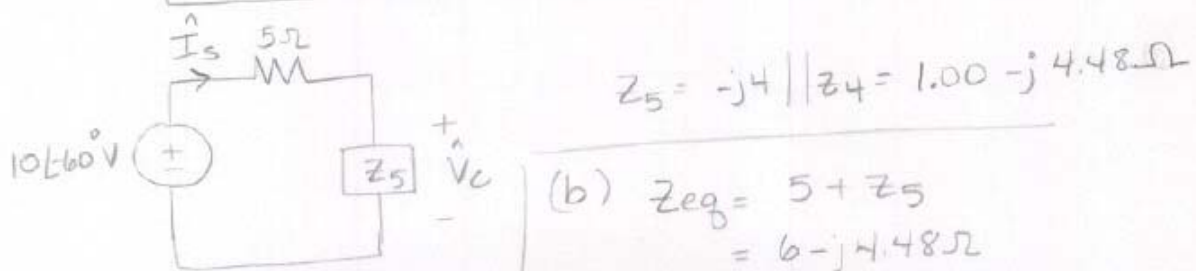 Îs 5Ω
10∠-60° V + - Z5 + V̂c -
Z5 = -j4 || Z4 = 1.00 - j 4.48Ω
(b) Zeq = 5 + Z5
= 6 - j 4.48Ω